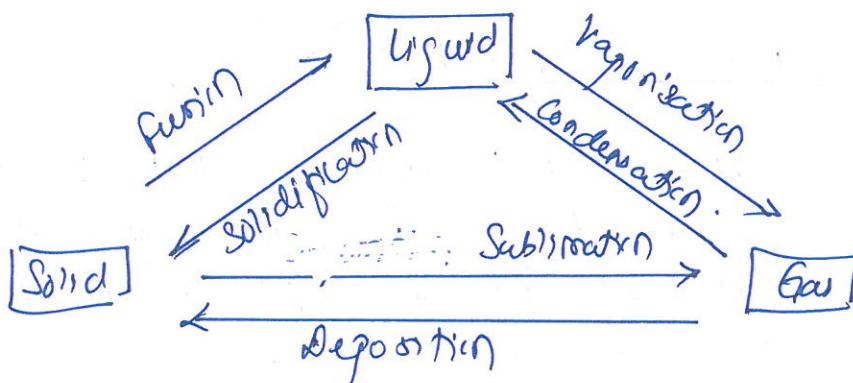 Liquid
Vaporisation
Fusion
Condensation.
Solidification
Sublimation
Solid
Gas
Deposition